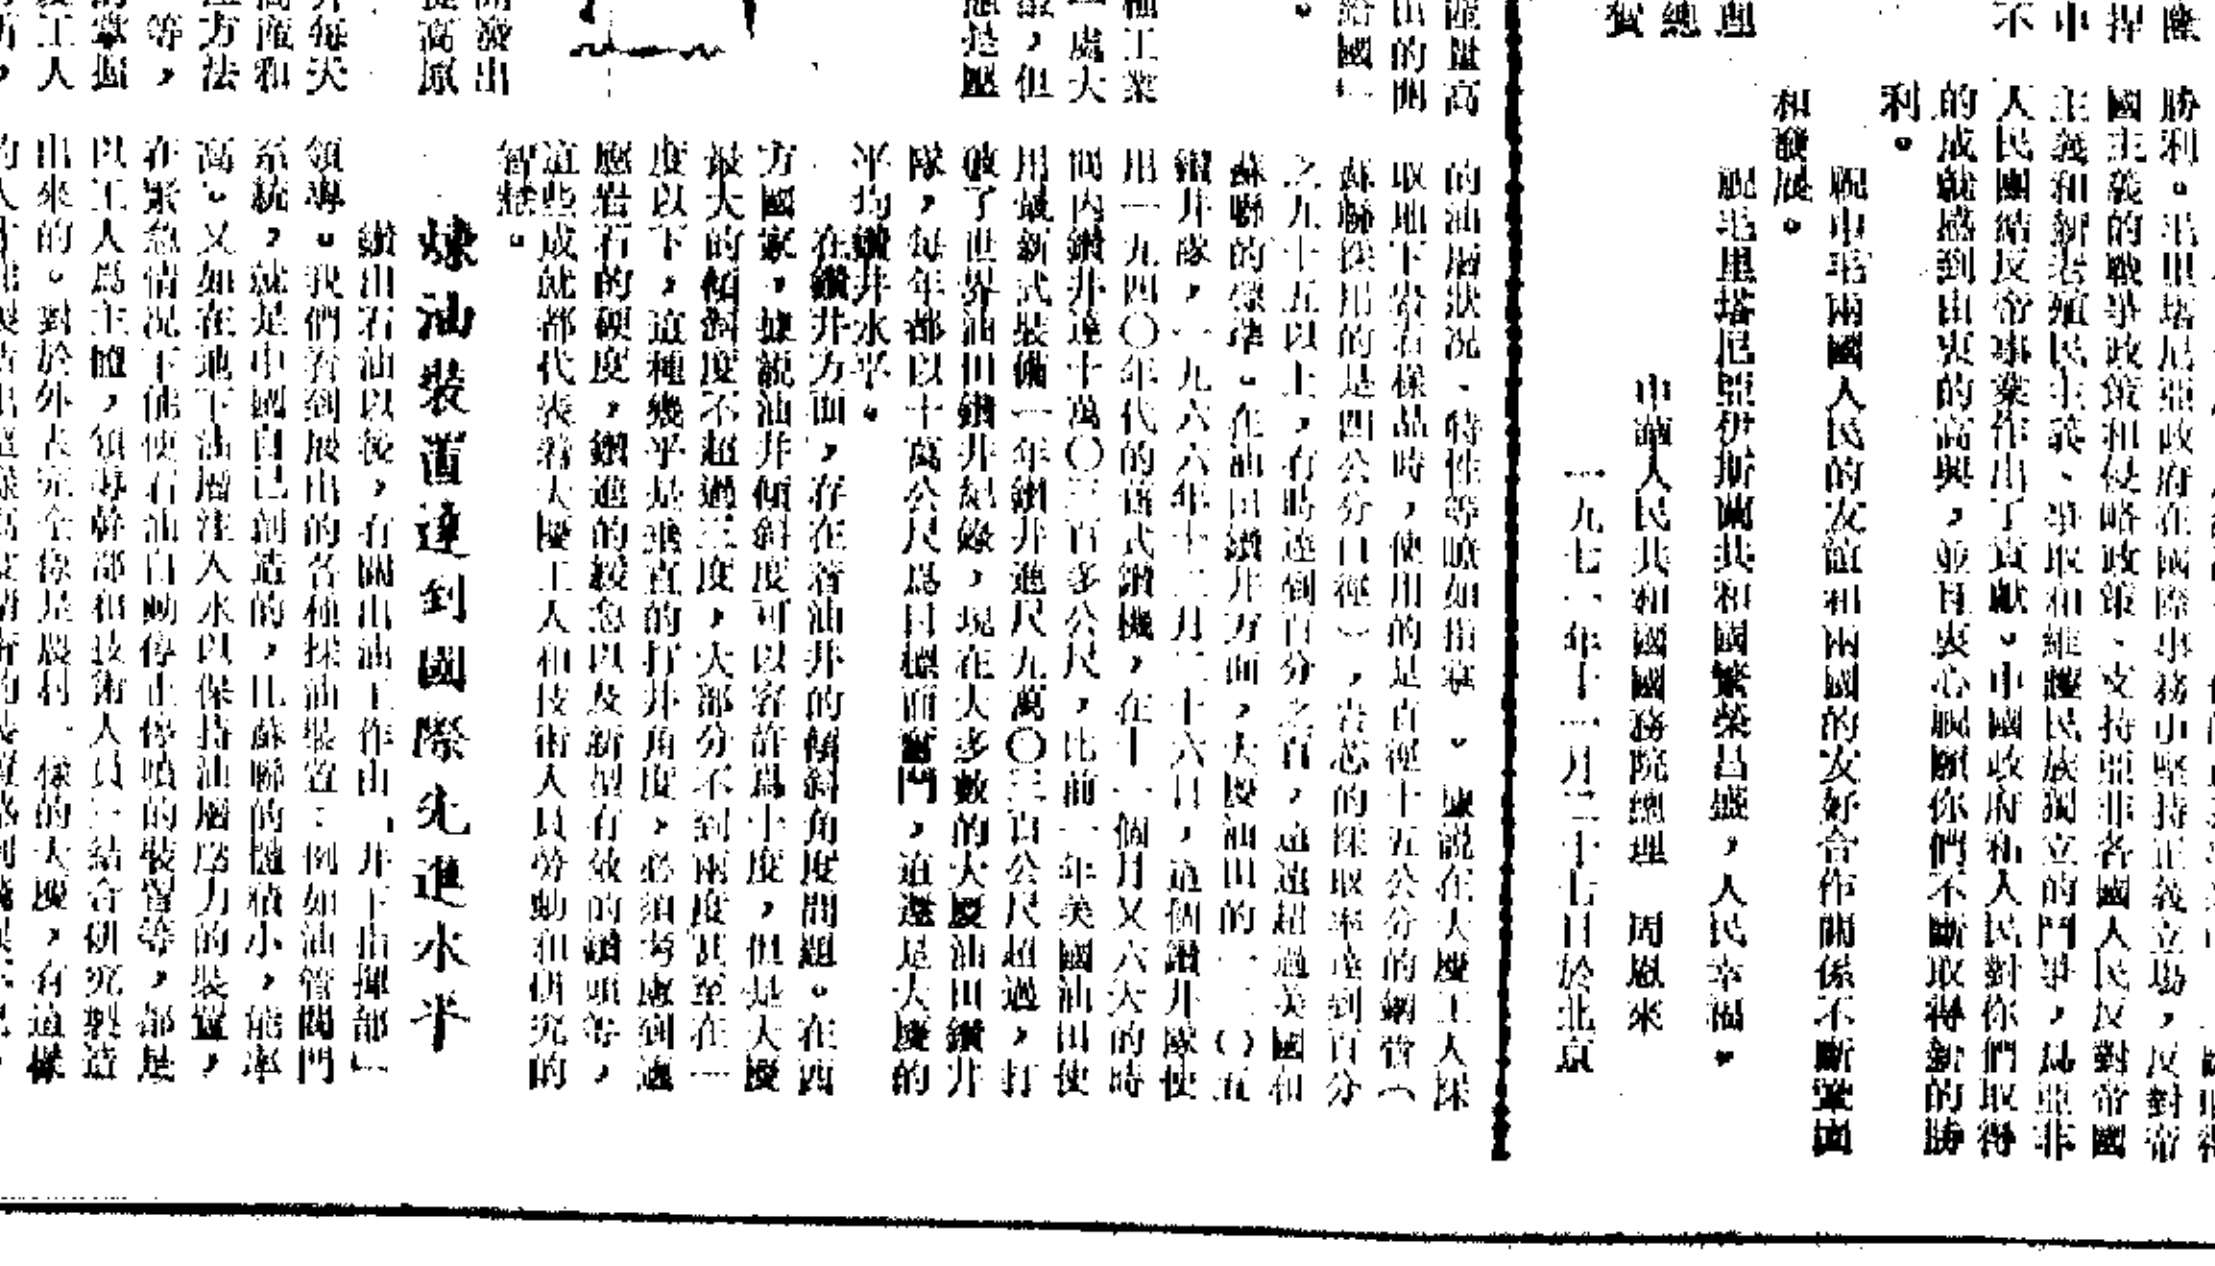 勝利。毛里塔尼亞政府在國際事務中堅持正義立場，反對帝
國主義的戰爭政策和侵略政策、支持亞非各國人民反對帝國
主義和新老殖民主義、爭取和維護民族獨立的鬥爭，爲亞非
人民團結反帝事業作出了貢獻。中國政府和人民對你們取得
的成就感到由衷的高興，並且衷心祝願你們不斷取得新的勝
利。
祝中毛兩國人民的友誼和兩國的友好合作關係不斷鞏固
和發展。
祝毛里塔尼亞伊斯蘭共和國繁榮昌盛，人民幸福。
中華人民共和國國務院總理　周恩來
一九七一年十一月二十七日於北京
產量高
出的開
給國
種工業
處大
設，但
是壓
的油層狀况、特性等瞭如指掌。據說在大慶工人採
取地下岩石樣品時，使用的是直徑十五公分的鋼管（
蘇聯採用的是四公分口徑），岩芯的採取率達到百分
之九十五以上，有時達到百分之百，遠遠超過美國和
蘇聯的標準。在油田鑽井方面，大慶油田的一二〇五
鑽井隊，一九六六年十二月二十六日，這個鑽井隊使
用一九四〇年代的舊式鑽機，在十一個月又六天的時
間內鑽井達十萬〇三百多公尺，比前一年美國油田使
用最新式裝備一年鑽井進尺九萬〇三百公尺超過，打
破了世界油田鑽井紀錄，現在大多數的大慶油田鑽井
隊，每年都以十萬公尺爲目標而奮鬥，這還是大慶的
平均鑽井水平。
在鑽井方面，存在着油井的傾斜角度問題。在西
方國家，據說油井傾斜度可以容許爲十度，但是大慶
最大的傾斜度不超過三度，大部分不到兩度甚至在一
度以下，這種幾乎是垂直的打井角度，必須考慮到適
應岩石的硬度，鑽進的緩急以及新型有效的鑽頭等，
這些成就都代表着大慶工人和技術人員勞動和研究的
智慧。
開發出
提高原
煉油裝置達到國際先進水平
鑽出石油以後，有關出油工作由「井下指揮部」
領導。我們看到展出的各種採油裝置：例如油管閥門
系統，就是中國自己創造的，比蘇聯的體積小，能率
高。又如在地下油層注入水以保持油層壓力的裝置，
在緊急情况下能使石油自動停止停噴的裝置等，都是
以工人爲主體，領導幹部和技術人員一結合研究製造
出來的。對於外表完全像是農村一樣的大慶，有這樣